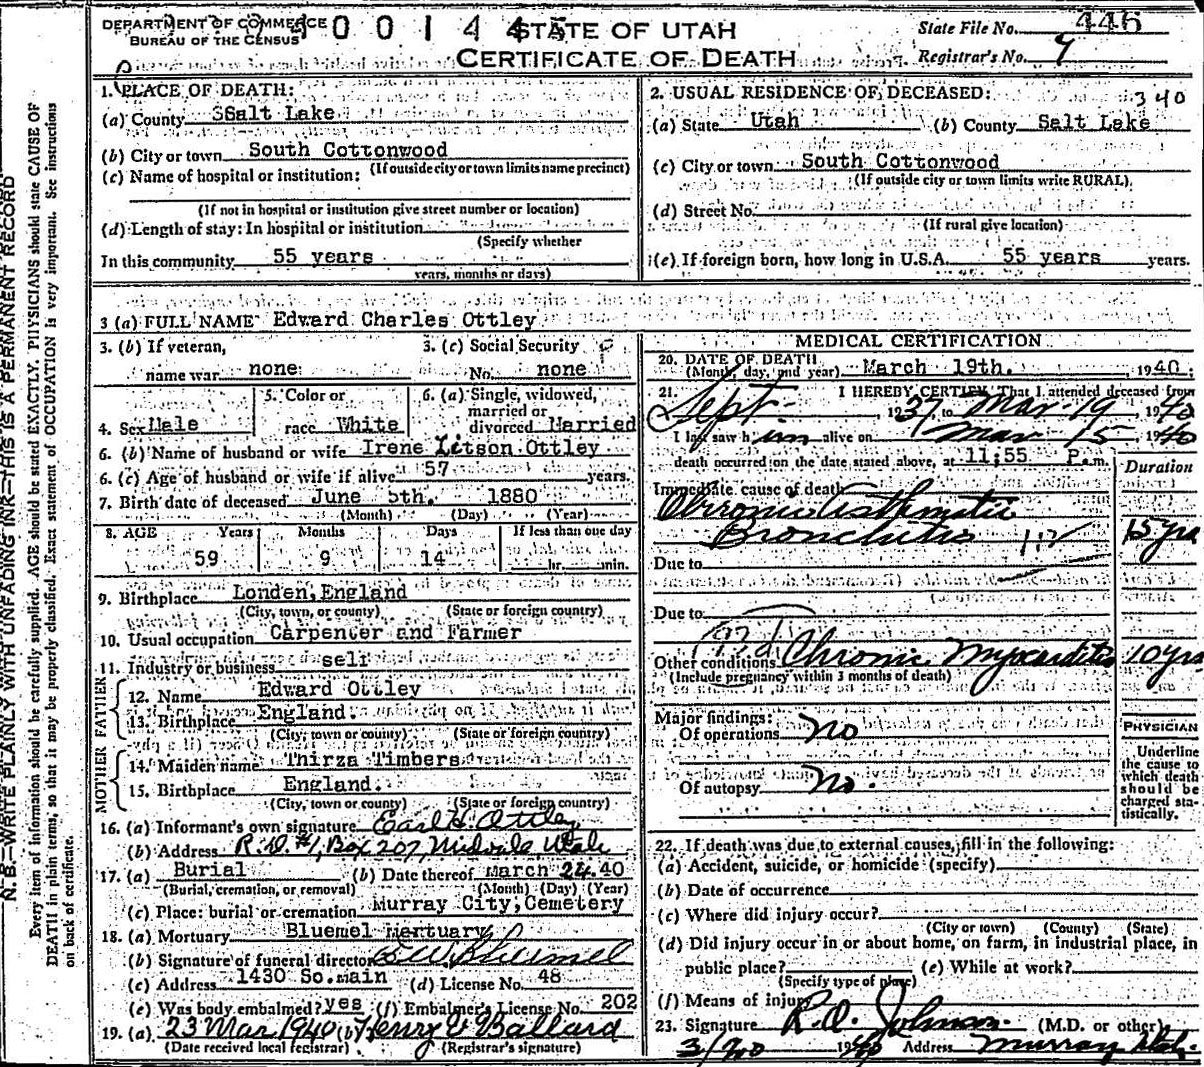 DEPARTMENT OF COMMERCE
BUREAU OF THE CENSUS
STATE OF UTAH
CERTIFICATE OF DEATH
State File No. 446
Registrar's No. 9
N. B.—WRITE PLAINLY WITH UNFADING INK—THIS IS A PERMANENT RECORD
Every item of information should be carefully supplied. AGE should be stated EXACTLY. PHYSICIANS should state CAUSE OF
DEATH in plain terms, so that it may be properly classified. Exact statement of OCCUPATION is very important. See instructions
on back of certificate.
1. PLACE OF DEATH:
(a) County SSalt Lake
(b) City or town South Cottonwood
(If outside city or town limits name precinct)
(c) Name of hospital or institution:
(If not in hospital or institution give street number or location)
(d) Length of stay: In hospital or institution
(Specify whether
In this community 55 years
years, months or days)
2. USUAL RESIDENCE OF DECEASED: 340
(a) State Utah (b) County Salt Lake
(c) City or town South Cottonwood
(If outside city or town limits write RURAL)
(d) Street No.
(If rural give location)
(e) If foreign born, how long in U.S.A. 55 years years.
3 (a) FULL NAME Edward Charles Ottley
3. (b) If veteran,
name war none
3. (c) Social Security
No. none
4. Sex Male
5. Color or
race White
6. (a) Single, widowed,
married or
divorced Married
6. (b) Name of husband or wife Irene Litson Ottley
6. (c) Age of husband or wife if alive 57 years.
7. Birth date of deceased June 5th. 1880
(Month) (Day) (Year)
8. AGE Years Months Days If less than one day
59 9 14 hr. min.
9. Birthplace London, England
(City, town, or county) (State or foreign country)
10. Usual occupation Carpenter and Farmer
11. Industry or business self
FATHER
12. Name Edward Ottley
13. Birthplace England.
(City, town or county) (State or foreign country)
MOTHER
14. Maiden name Thirza Timbers
15. Birthplace England.
(City, town or county) (State or foreign country)
16. (a) Informant's own signature Earl H. Ottley
(b) Address R.D. #1, Box 207, Midvale, Utah
17. (a) Burial (b) Date thereof March 24.40
(Burial, cremation, or removal) (Month) (Day) (Year)
(c) Place: burial or cremation Murray City, Cemetery
18. (a) Mortuary Bluemel Mortuary
(b) Signature of funeral director
(c) Address 1430 So.main (d) License No. 48
(e) Was body embalmed? yes (f) Embalmer's License No. 202
19. (a) 23 Mar 1940 (b) Henry V Ballard
(Date received local registrar) (Registrar's signature)
MEDICAL CERTIFICATION
20. DATE OF DEATH
(Month, day, and year) March 19th. 1940
21. I HEREBY CERTIFY, That I attended deceased from
Sept. 1937 to Mar 19 1940
I last saw him alive on Mar 15 1940
death occurred on the date stated above, at 11;55 P.m.
Duration
Immediate cause of death
Chronic Asthmatic
Bronchitis 15 yrs
Due to
Due to
Other conditions Chronic Myocarditis 10 yrs
(Include pregnancy within 3 months of death)
Major findings:
Of operations No
Of autopsy No.
PHYSICIAN
Underline
the cause to
which death
should be
charged sta-
tistically.
22. If death was due to external causes, fill in the following:
(a) Accident, suicide, or homicide (specify)
(b) Date of occurrence
(c) Where did injury occur?
(City or town) (County) (State)
(d) Did injury occur in or about home, on farm, in industrial place, in
public place? (e) While at work?
(Specify type of place)
(f) Means of injury
23. Signature (M.D. or other)
3/ 1940 Address Murray Utah